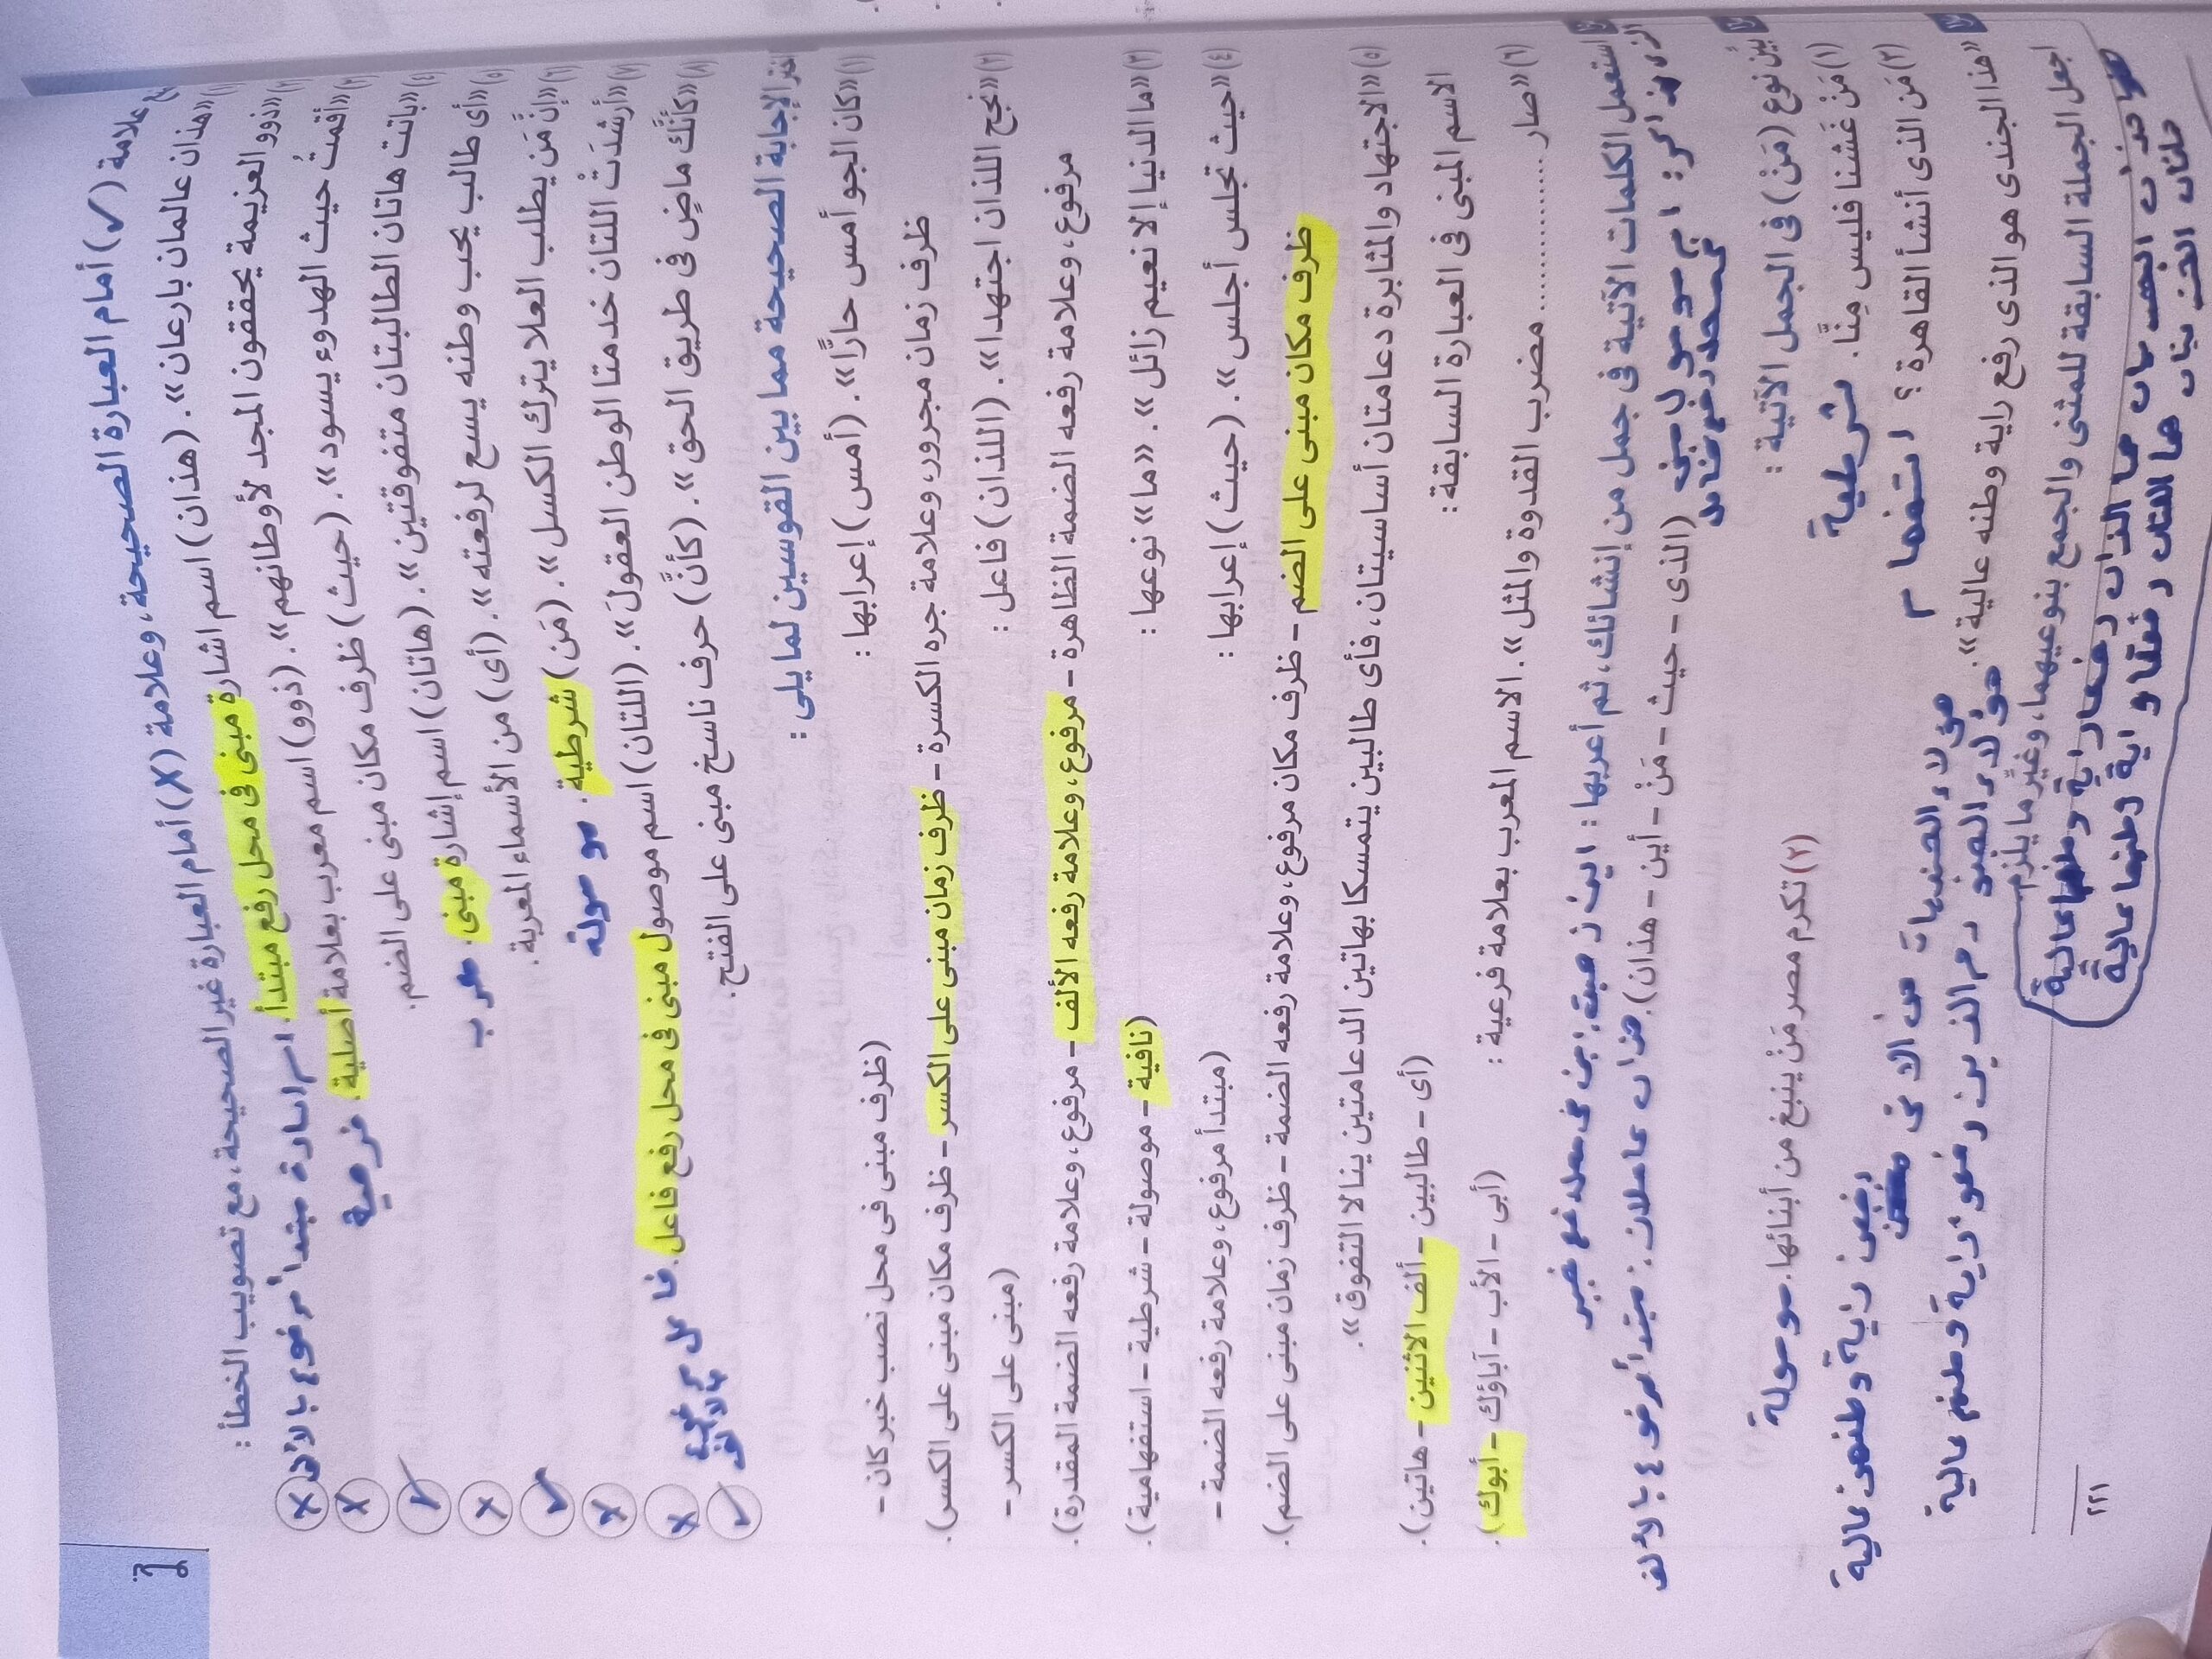 ضع علامة (✓) أمام العبارة الصحيحة، وعلامة (✗) أمام العبارة غير الصحيحة، مع تصويب الخطأ :
(١) «هذان عالمان بارعان». (هذان) اسم اشارة مبنى فى محل رفع مبتدأ. اسم اشارة مبتدأ مرفوع بالألف ✗
(٢) «ذوو العزيمة يحققون المجد لأوطانهم». (ذوو) اسم معرب بعلامة أصلية. فرعية ✗
(٣) «أقمتُ حيث الهدوء يسود». (حيث) ظرف مكان مبنى على الضم. ✓
(٤) «باتت هاتان الطالبتان متفوقتين». (هاتان) اسم إشارة مبنى. معرب ✗
(٥) «أى طالب يحب وطنه يسع لرفعته». (أى) من الأسماء المعربة. ✓
(٦) «إنَّ مَن يطلب العلا يترك الكسل». (مَن) شرطية. موصولة ✗
(٧) «أرشدَتْ اللتان خدمتا الوطن العقولَ». (اللتان) اسم موصول مبنى فى محل رفع فاعل. فاعل مرفوع بالألف ✗
(٨) «كأنَّك ماضٍ فى طريق الحق». (كأنَّ) حرف ناسخ مبنى على الفتح. ✓
اختر الإجابة الصحيحة مما بين القوسين لما يلى :
(١) «كان الجو أمس حارًّا». (أمس) إعرابها : (ظرف مبنى فى محل نصب خبر كان -
ظرف زمان مجرور، وعلامة جره الكسرة - ظرف زمان مبنى على الكسر - ظرف مكان مبنى على الكسر).
(٢) «نجح اللذان اجتهدا». (اللذان) فاعل : (مبنى على الكسر -
مرفوع، وعلامة رفعه الضمة الظاهرة - مرفوع، وعلامة رفعه الألف - مرفوع، وعلامة رفعه الضمة المقدرة).
(٣) «ما الدنيا إلا نعيم زائل». «ما» نوعها : (نافية - موصولة - شرطية - استفهامية).
(٤) «حيث تجلس أجلس». (حيث) إعرابها : (مبتدأ مرفوع، وعلامة رفعه الضمة -
ظرف مكان مبنى على الضم - ظرف مكان مرفوع، وعلامة رفعه الضمة - ظرف زمان مبنى على الضم).
(٥) «الاجتهاد والمثابرة دعامتان أساسيتان، فأى طالبين يتمسكا بهاتين الدعامتين ينالا التفوق».
الاسم المبنى فى العبارة السابقة : (أى - طالبين - ألف الاثنين - هاتين).
(٦) «صار ............... مضرب القدوة والمثل». الاسم المعرب بعلامة فرعية : (أبى - الأب - آباؤك - أبوك).
استعمل الكلمات الآتية فى جمل من إنشائك، ثم أعربها : اين ذهبت: مبنى فى محل رفع خبر
(الذى - حيث - مَنْ - أين - هذان). هذان عاملان: مبتدأ مرفوع بالألف
اسم موصول مبنى
فى محل رفع فاعل
بَيِّن نوع (مَنْ) فى الجمل الآتية :
(١) مَنْ غَشَّنا فليس مِنَّا. شرطية
(٢) مَن الذى أنشأ القاهرة ؟ استفهام
(٣) تكرم مصر مَنْ ينبغ من أبنائها. موصولة
«هذا الجندى هو الذى رفع راية وطنه عالية».
اجعل الجملة السابقة للمثنى والجمع بنوعيهما، وغيِّر ما يلزم.
هؤلاء الفتيات هن الاتى رفعن راية وطنهن عالية
هؤلاء الجنود هم الذين رفعوا راية وطنهم عالية
هذان الجنديان هما اللذان رفعا راية وطنهما عالية
هاتان الجنديتان هما اللتان رفعتا راية وطنهما عالية
٢٢١